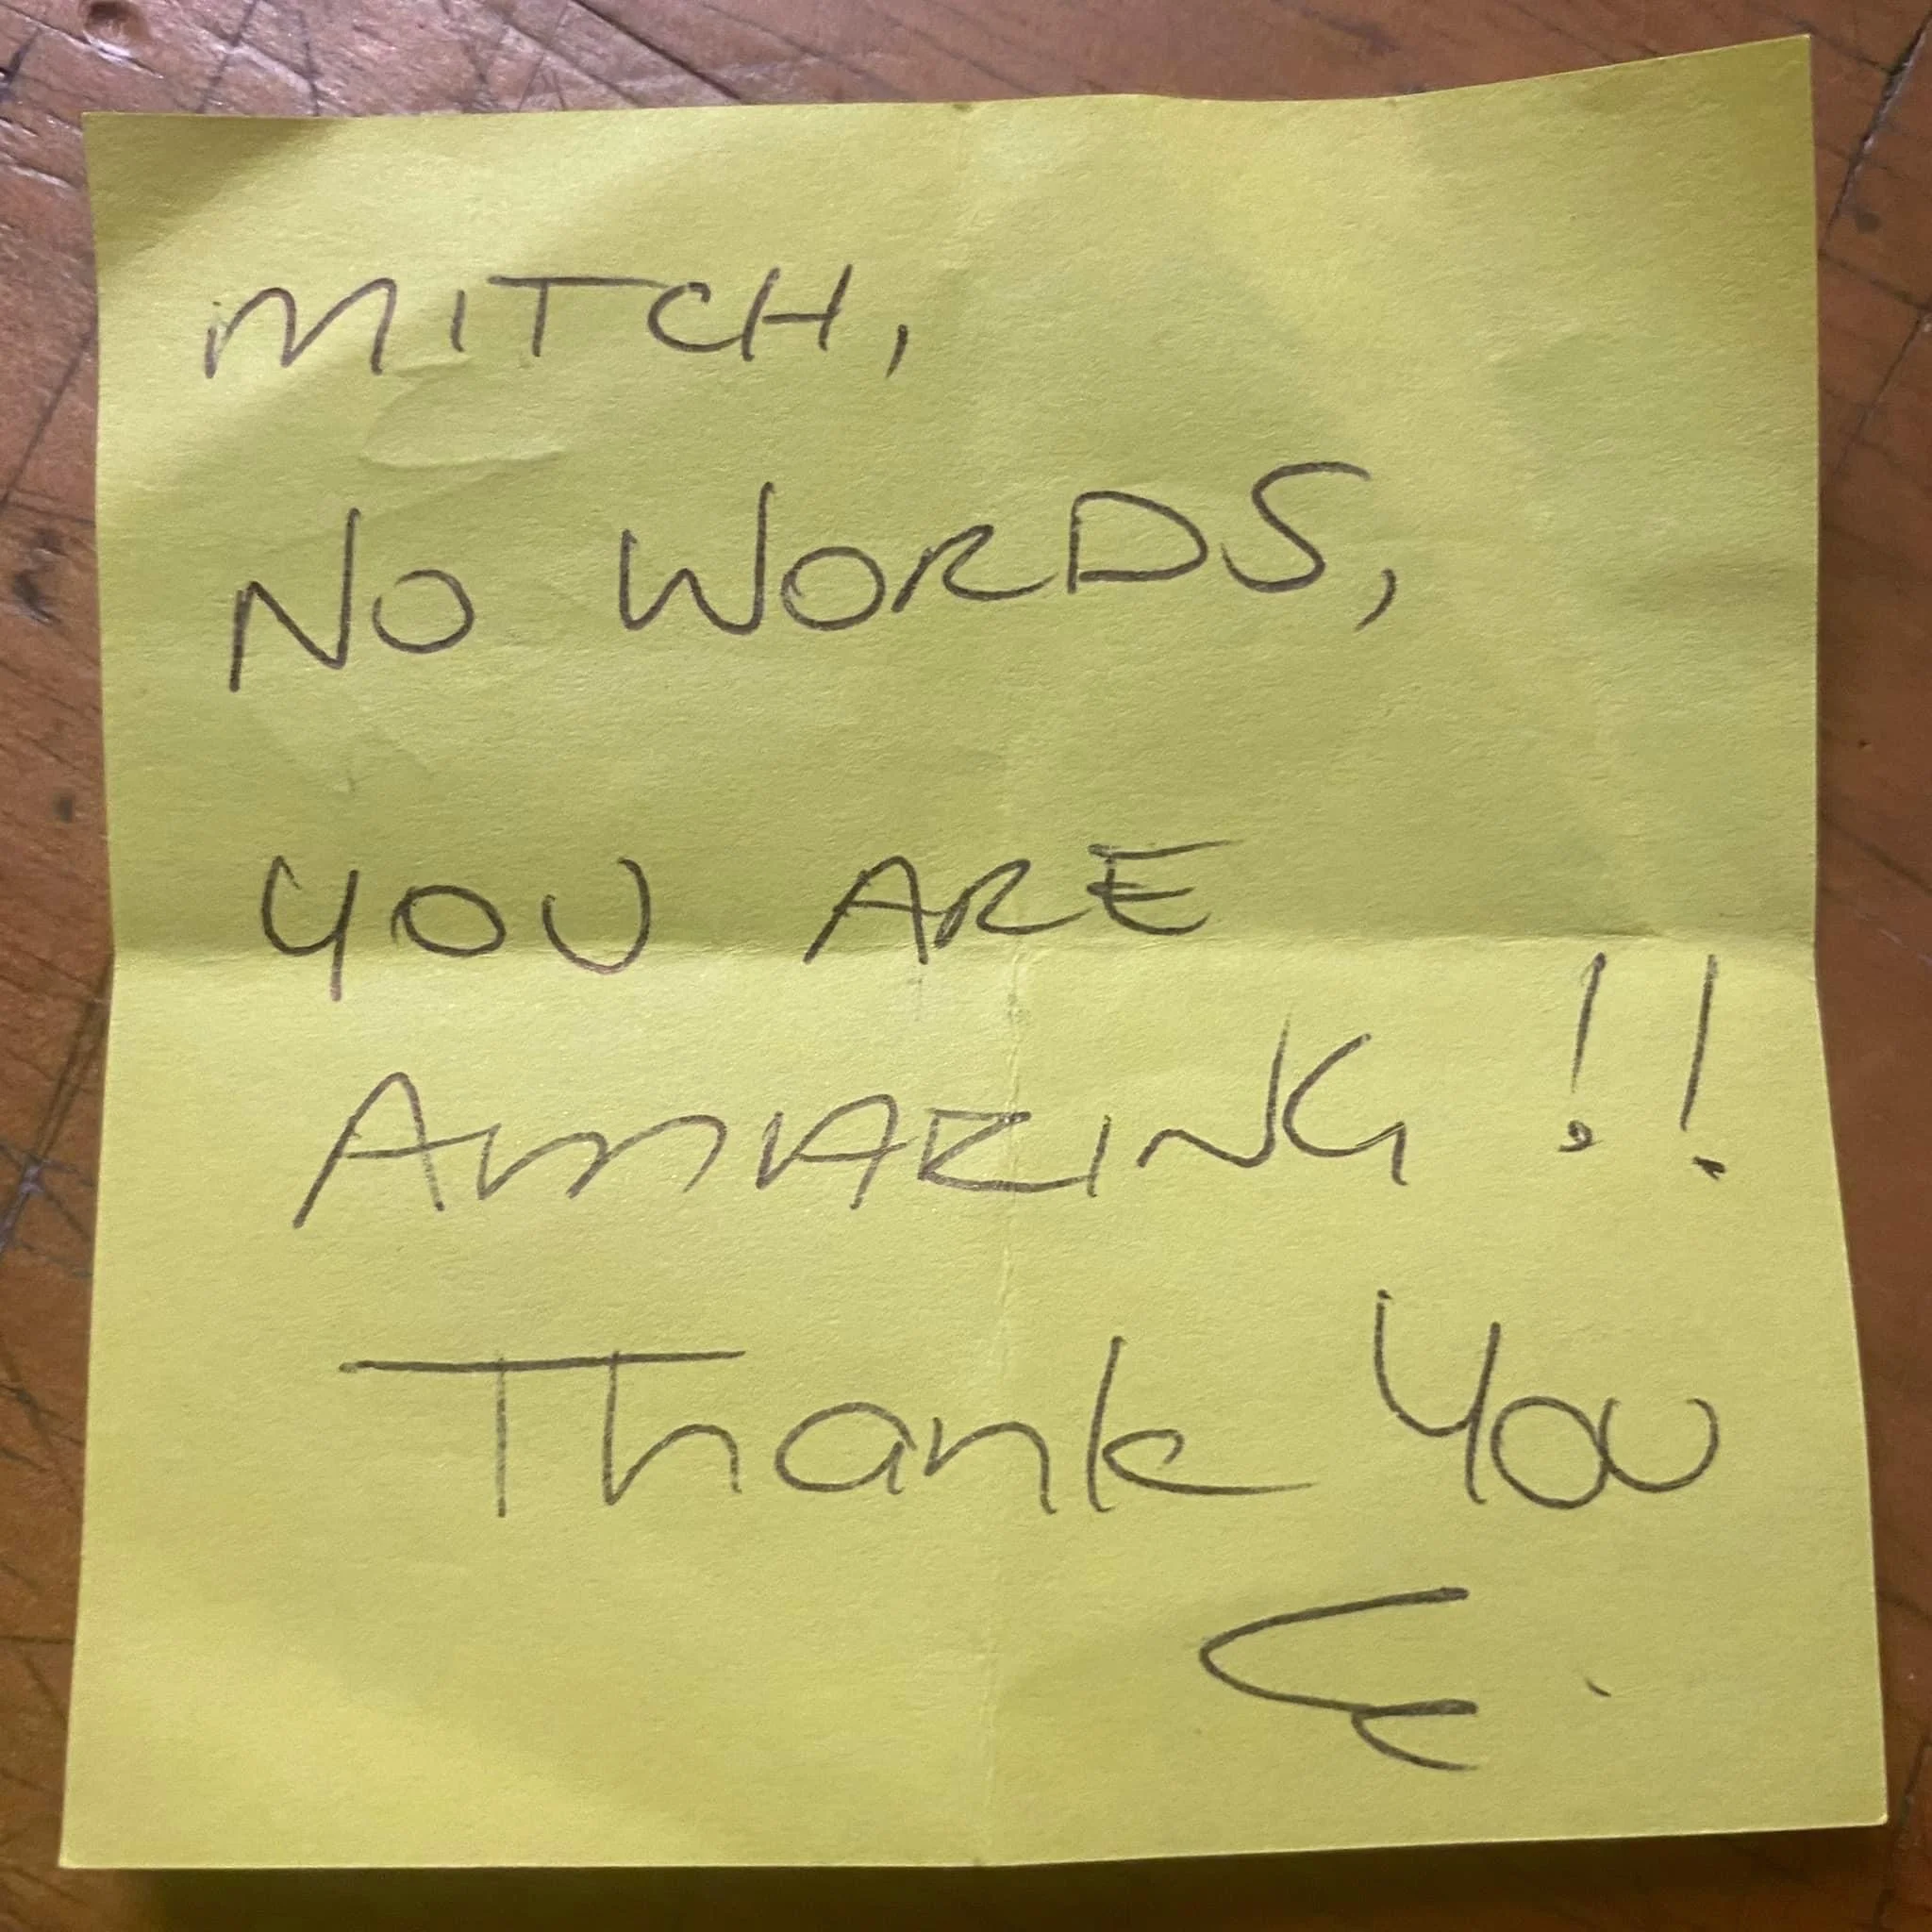 MITCH,
NO WORDS,
YOU ARE
AMAZING!!
Thank You